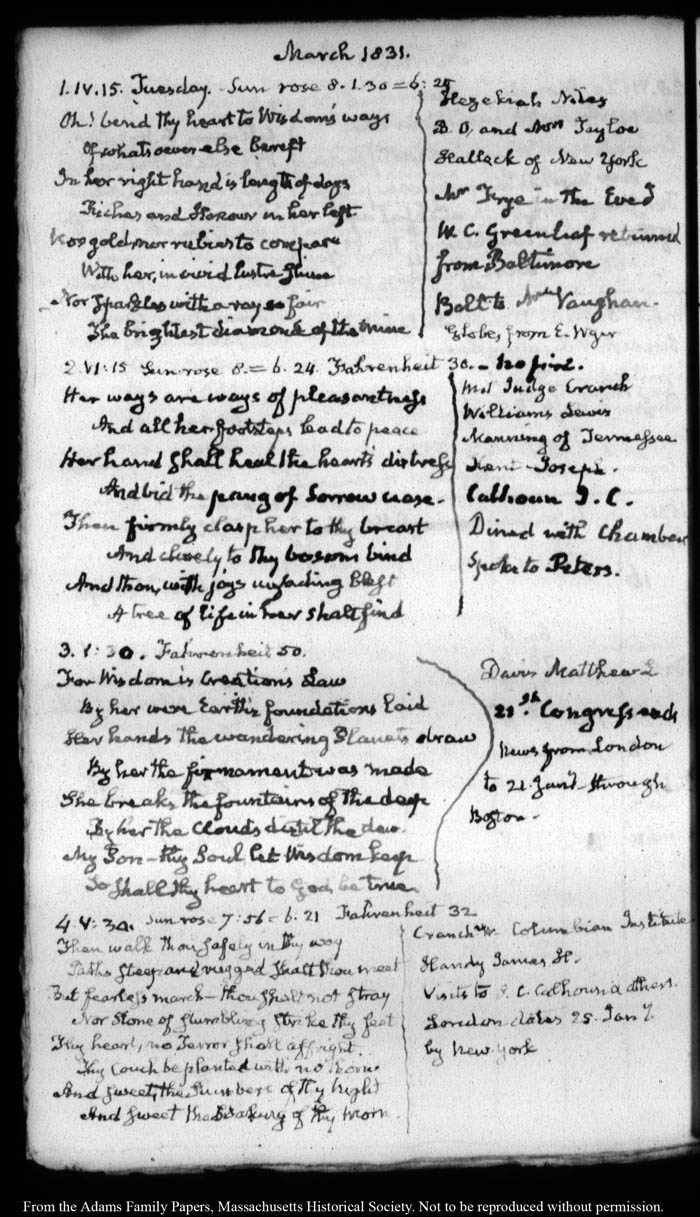 March 1831.
1. IV.15. Tuesday. Sun rose 8.1.30 = 6:25
Oh! bend thy heart to Wisdom's ways
Of whatsoever else bereft
In her right hand is length of days
Riches and Honour in her left
Nor gold, nor rubies to compare
With her, in vivid lustre shine
Nor sparkles with a ray so fair
The brightest diamond of the mine
Hezekiah Niles
B. O. and Mrs Tayloe
Hallack of New York
Mr Frye in the Eveg
W. C. Greenleaf returned
from Baltimore
Bolt to Vaughan.
Globe, from E. Wyer
2. VI:15 Sun rose 8. = 6.24. Fahrenheit 30. - no fire.
Her ways are ways of pleasantness
And all her footsteps lead to peace
Her hand shall heal the heart's distress
And bid the pang of Sorrow cease.
Then firmly clasp her to thy breast
And closely to thy bosom bind
And thou, with joys unfading blest
A tree of life in her shalt find
Md Judge Cranch
Williams Lewis
Manning of Tennessee
Kent Joseph.
Calhoun J. C.
Dined with Chamber
Spoke to Peters.
3. V:30. Fahrenheit 50.
For Wisdom is Creation's Law
By her were Earth's foundations laid
Her hands the wandering Planets draw
By her the firmament was made
She breaks the fountains of the deep
By her the Clouds distil the dew.
My Son - thy Soul let Wisdom keep
So shall thy heart to God be true.
Davis Matthew L
21st Congress ends
News from London
to 21 Jany through
Boston.
4. V:30. Sun rose 7:56 = 6:21 Fahrenheit 32
Then walk thou safely in thy way
Paths steep and rugged shalt thou meet
But fearless march - thou shalt not stray
Nor Stone of stumbling strike thy feet
Thy heart, no Terror shall affright.
Thy Couch be planted with no thorn
And sweet, the slumbers of thy Night
And sweet the breaking of thy Morn.
Cranch W. Columbian Institute
Handy James H.
Visits to J. C. Calhoun & others.
London dates 25. Jany.
by New York
From the Adams Family Papers, Massachusetts Historical Society. Not to be reproduced without permission.